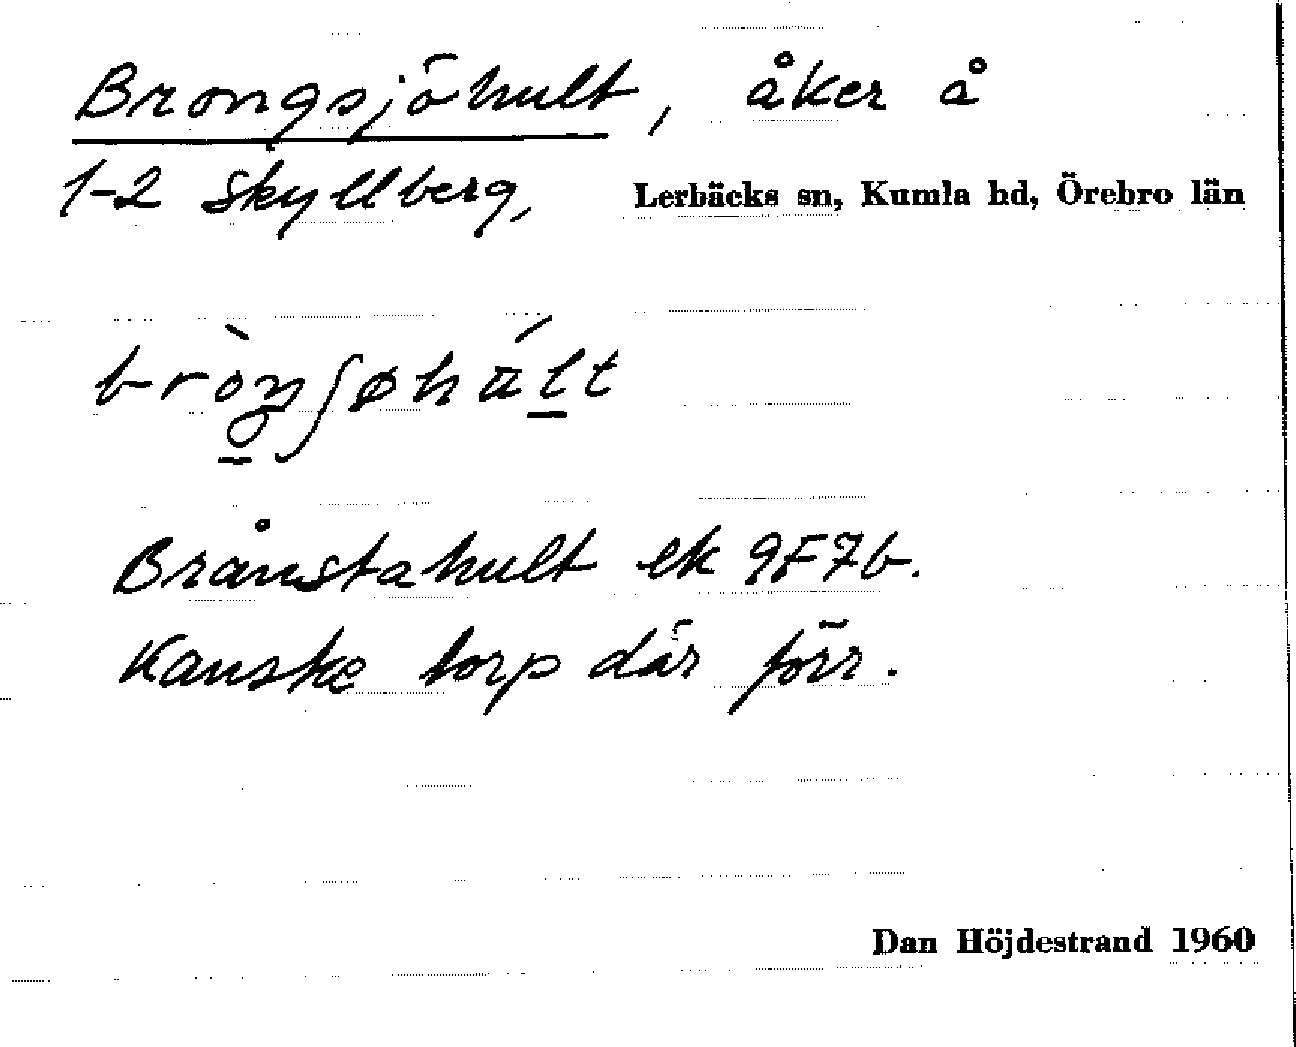 Brongsjöhult, åker å
1-2 Skyllberg, Lerbäcks sn, Kumla hd, Örebro län
Brånstahult ek 9F7b.
Kanske torp där förr.
Dan Höjdestrand 1960